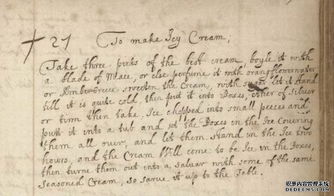 27 To make Icy Cream,
Take three pints of the best cream, boyle it with
a blade of Mace, or else perfume it with orang flower water
or Ambergreece, sweeten the Cream, with let it stand
till it is quite cold, then put it into Boxes, ether of Silver
or tinn then take, Ice chopped into small peeces and
putt it into a tub and set the Boxes in the Ice covering
them all over, and let them stand in the Ice two
hours, and the Cream Will come to be Ice in the Boxes,
then turne them out into a salver with some of the same
Seasoned Cream, so sarve it up to the Table.